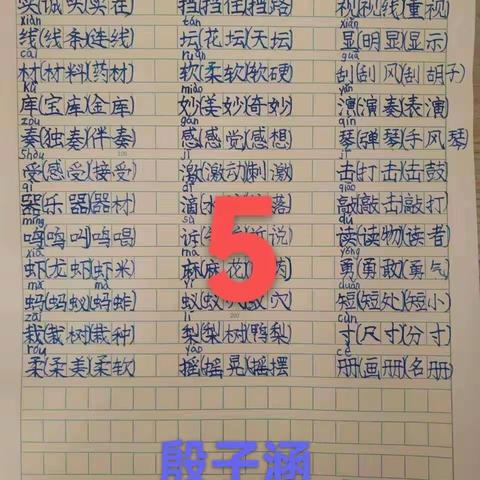 实(诚实)(实在) 挡(挡住)(挡路) 视(视线)(重视)
xiàn tán xiǎn
线(线条)(连线) 坛(花坛)(天坛) 显(明显)(显示)
cái ruǎn guā
材(材料)(药材) 软(柔软)(软硬) 刮(刮风)(刮胡子)
kù miào
库(宝库)(金库) 妙(美妙)(奇妙) 演(演奏)(表演)
zòu gǎn qín
奏(独奏)(伴奏) 感(感觉)(感想) 琴(弹琴)(手风琴)
shòu jī jī
受(感受)(接受) 激(激动)(刺激) 击(打击)(击鼓)
qì qiāo
器(乐器)(器材) 滴( 落) 敲(敲击)(敲打)
míng sù
鸣(鸣叫)(鸣唱) 诉( 诉说) 读(读物)(读者)
xiā má yǒng
虾(龙虾)(虾米) 麻(麻花)( 勇(勇敢)(勇气)
mǎ yǐ duǎn
蚂(蚂蚁)(蚂蚱) 蚁( 穴) 短(短处)(短小)
zāi lí cùn
栽(栽树)(栽种) 梨(梨树)(鸭梨) 寸(尺寸)(分寸)
róu yáo cè
柔(柔美)(柔软) 摇(摇晃)(摇摆) 册(画册)(名册)
5
殷子涵